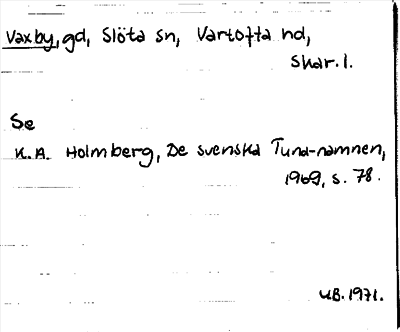 Vaxby, gd, Slöta sn, Vartofta hd,
Skar. l.
Se
K.A. Holmberg, De svenska Tuna-namnen,
1969, s. 78.
UB. 1971.